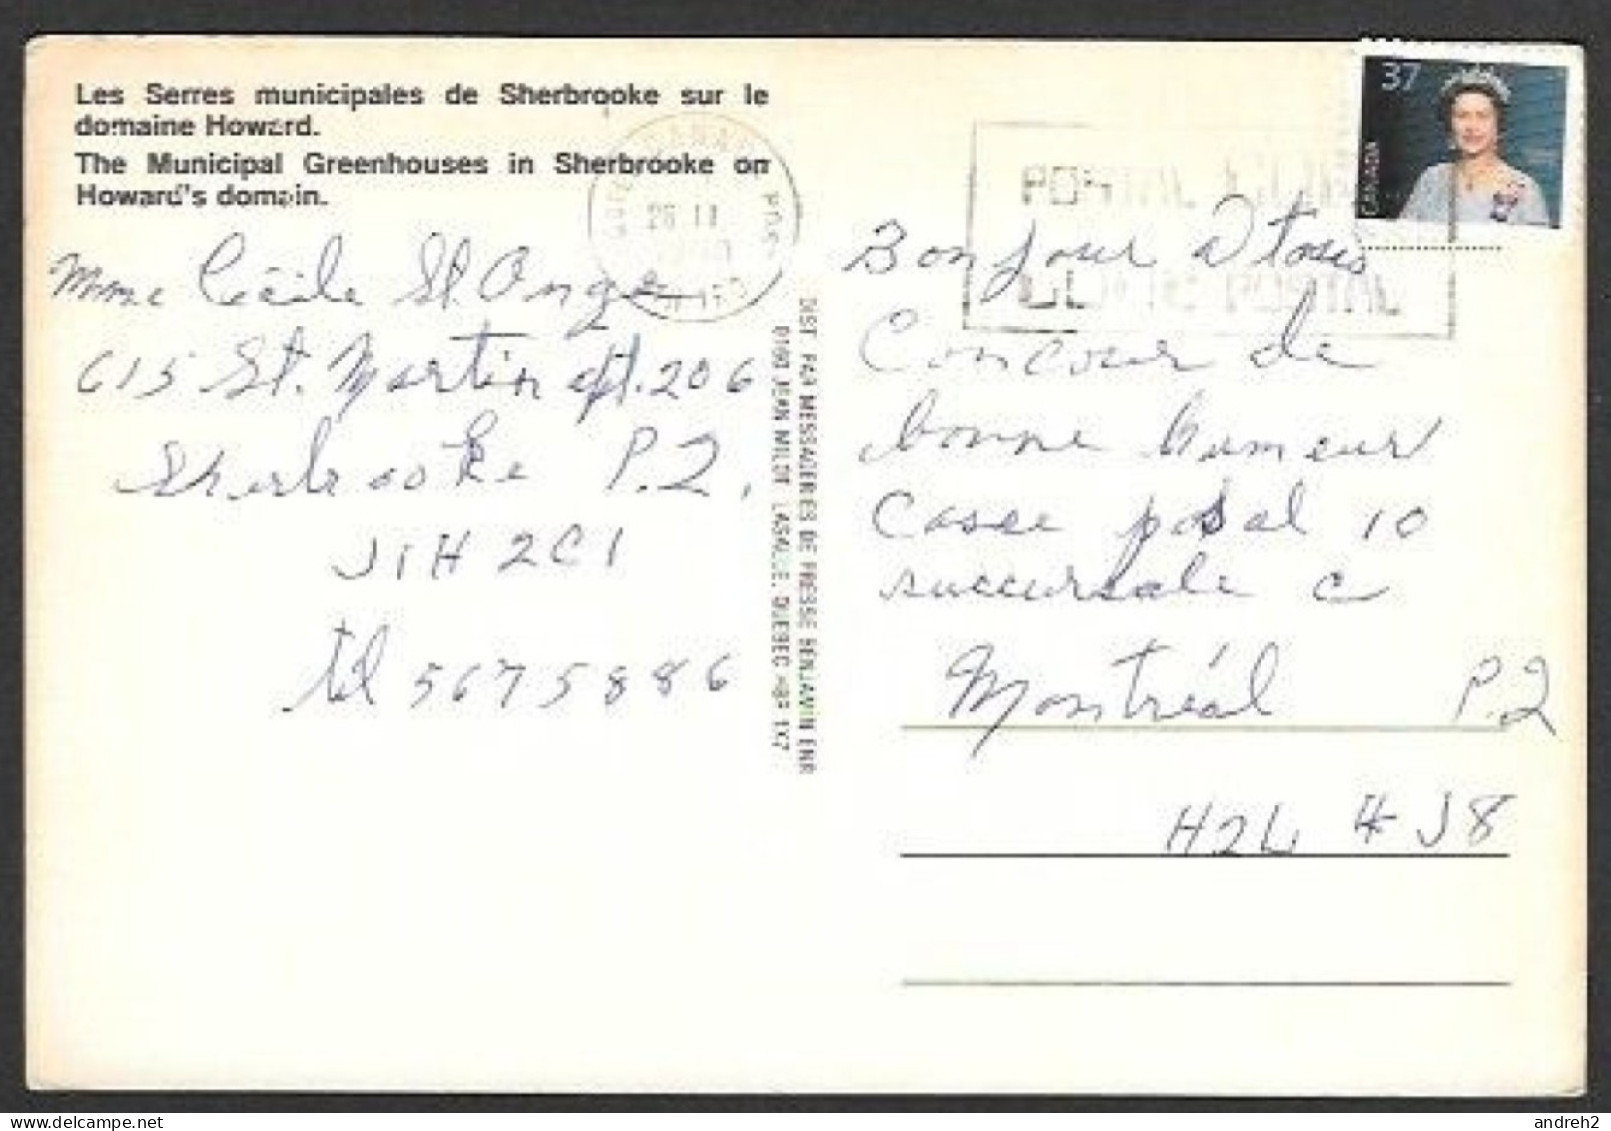 Les Serres municipales de Sherbrooke sur le
domaine Howard.
The Municipal Greenhouses in Sherbrooke on
Howard's domain.
Mme Cécile St. Onge
615 St. Martin apt. 206
Sherbrooke P.Q.
J1H 2C1
tél 567 5886
DIST. PAR MESSAGERIES DE PRESSE BENJAMIN ENR
JEAN MILOT, LASALLE, QUEBEC 1X7
26 II
37
CANADA
POSTAL CODE
CODE POSTAL
Bonjour à tous
Concour de
bonne humeur
Casse postal 10
succursale C
Montréal P.Q
H2L 4J8
andreh2